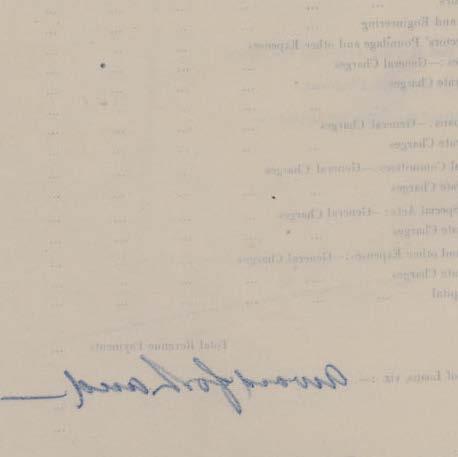 and Engineering
Poundage and other Expenses
:—General Charges
Charges
.—General Charges
Charges
Committees:—General Charges
Charges
Special Acts:—General Charges
Charges
and other Expenses:—General Charges
Charges
Total Revenue Payments
of Loans, viz. :—
award for Land